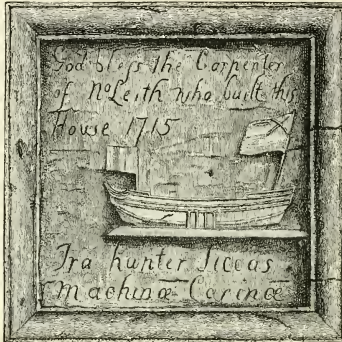 God bless the Carpenters
of No Leith who built this
House 1715
Tra hunter siccas
machinæ Carinæ